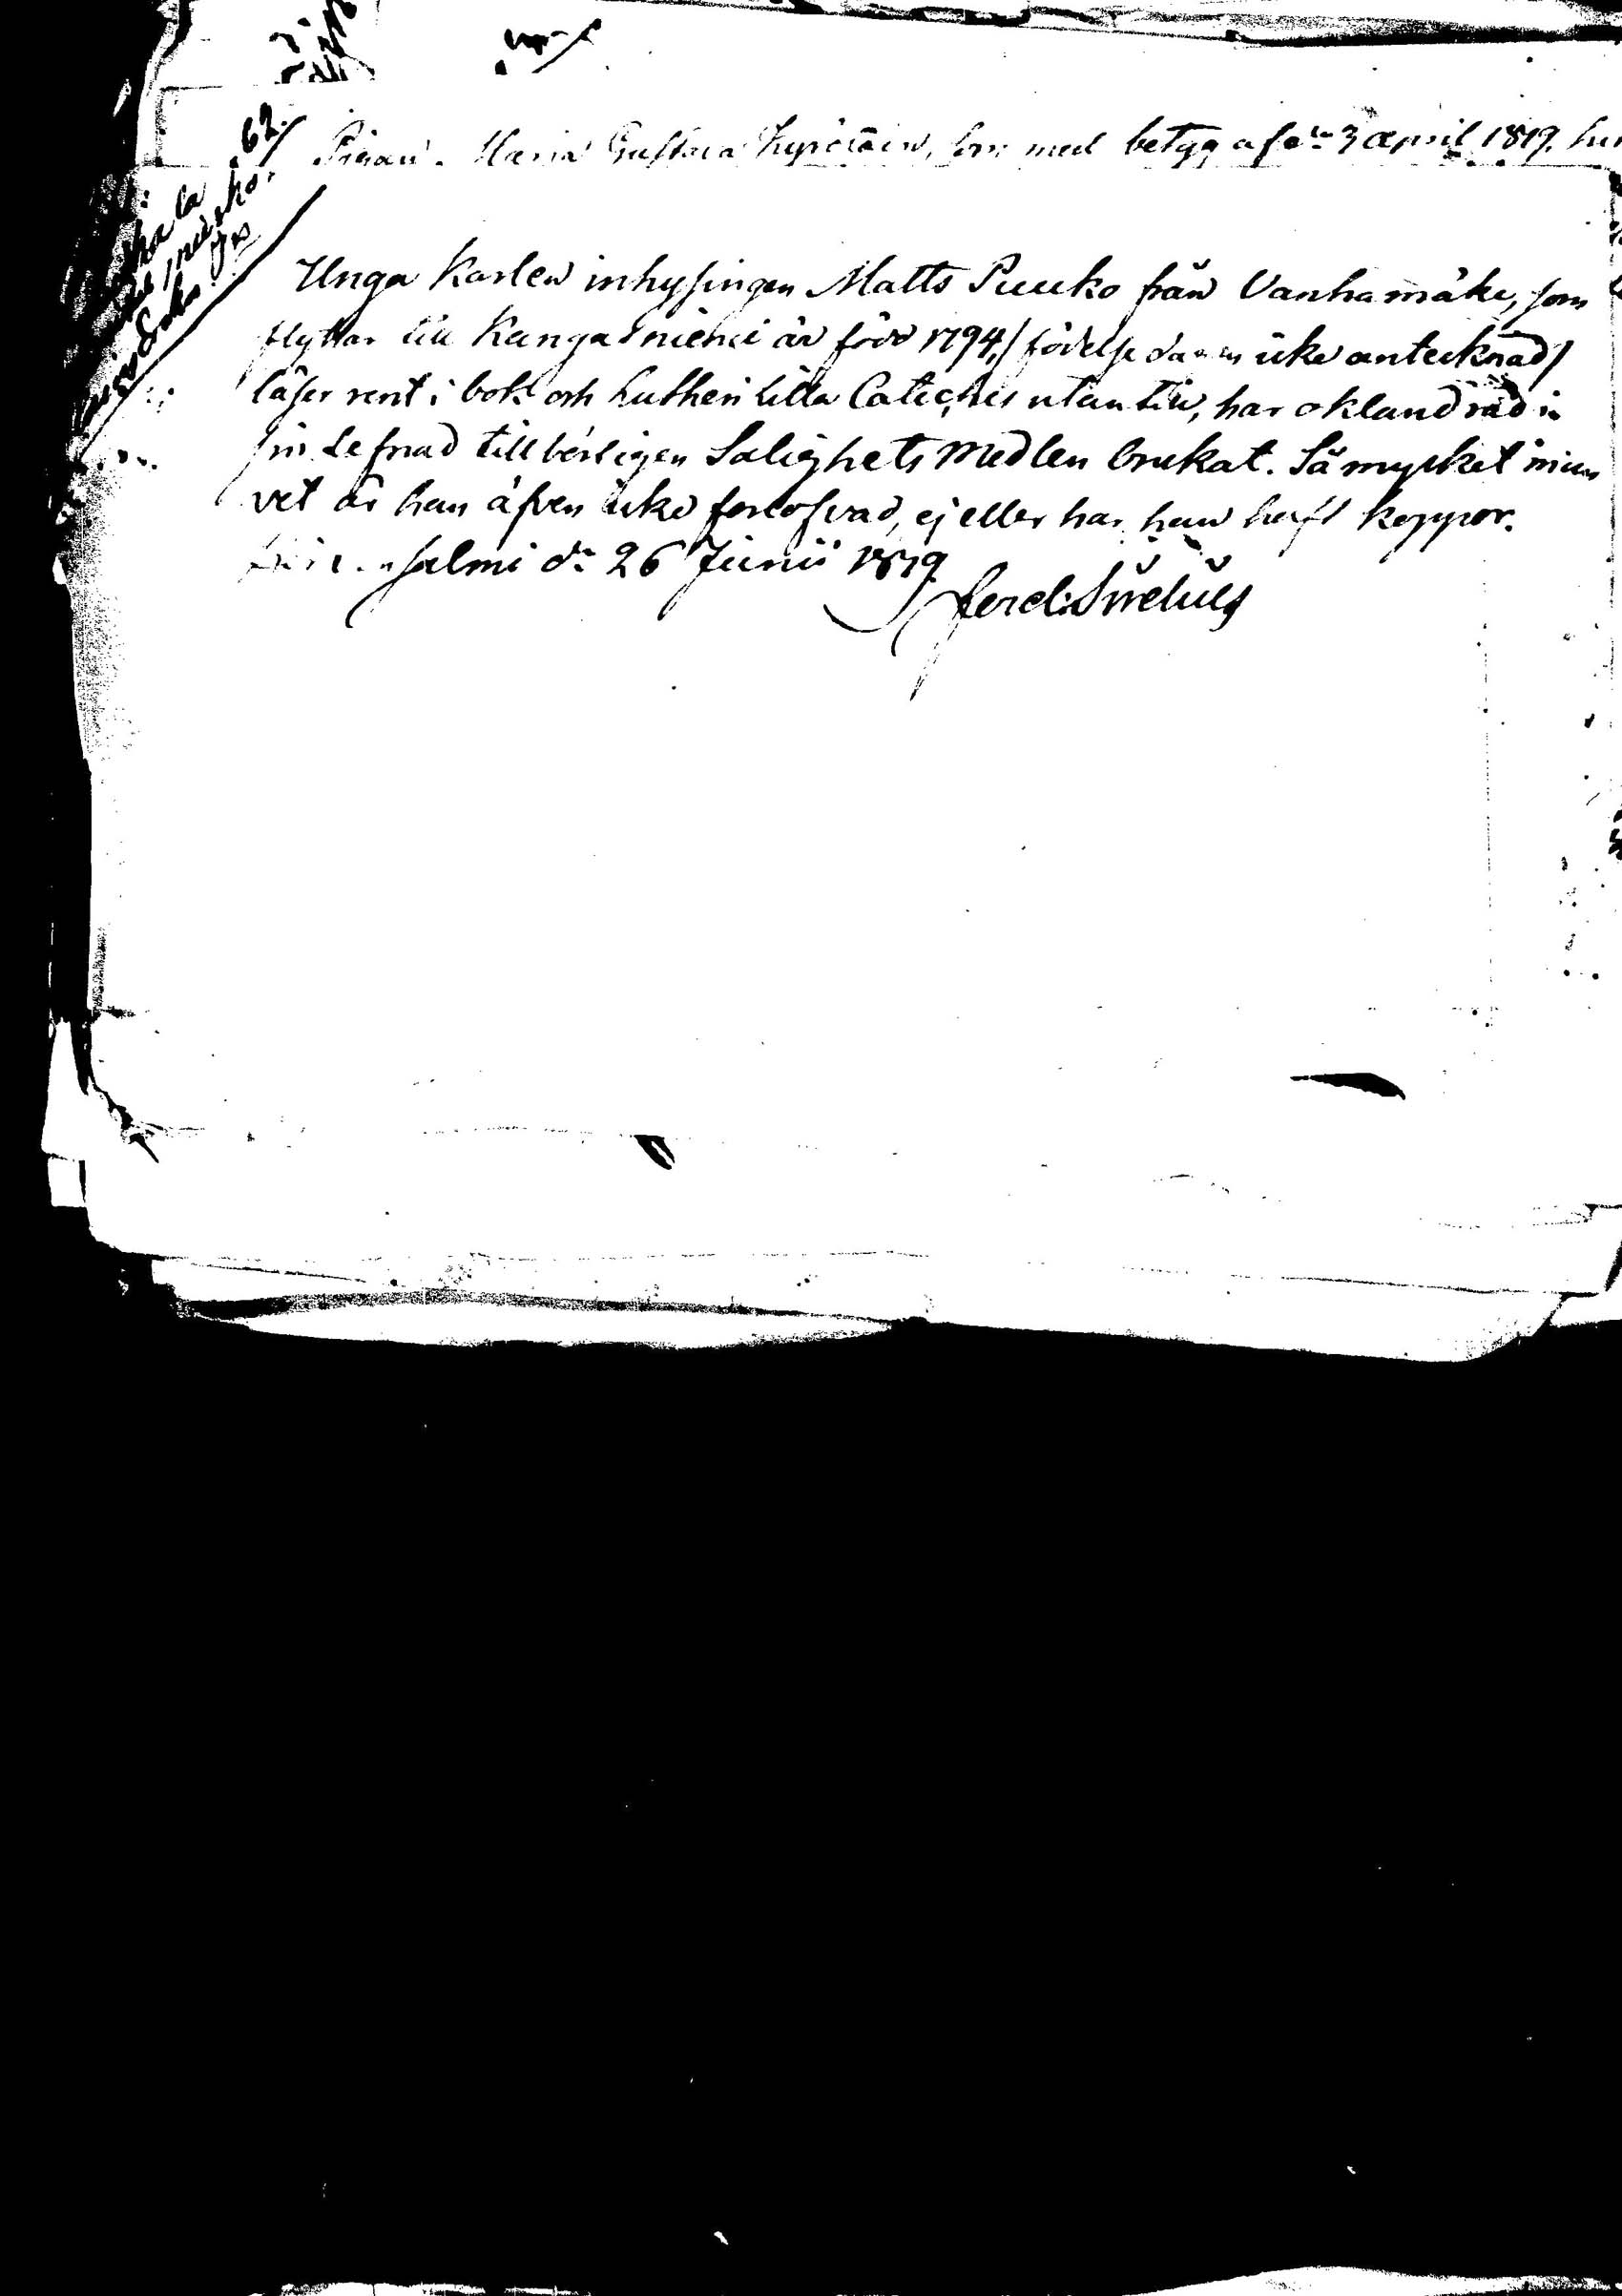 62.
Pigan. Maria Gustava som med betyg af d: 3 April 1819.
Unga Karlen inhysingen Matts Puuko från Vanhamäki, som
flyttar till Kangasniemi är född 1794, / födelse dagen icke antecknad /
läser rent i bok och Lutheri lilla Cateches utantill, har oklandrad i
sin Lefnad tillbörligen Salighets Medlen brukat. Så mycket man
vet är han äfven icke förlofvad, ej eller har han haft koppor.
salmi d: 26 Junii 1819
Ferd: